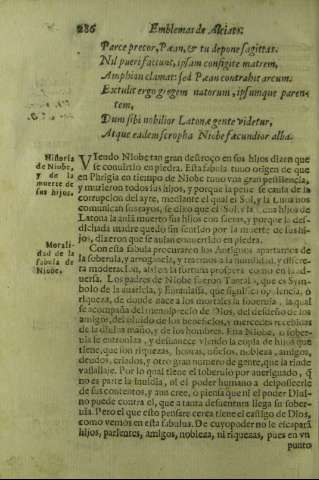 286 Emblemas de Alciato.
Parce precor, Pæan, & tu depone sagittas.
Nil pueri faciunt, ipsam configite matrem,
Amphion clamat: sed Pæan contrahit arcum.
Extulit ergo gregem natorum, ipsumque paren-
tem,
Dum sibi nobilior Latonæ gente videtur,
Atque eadem scropha Niobe fæcundior alba.
Historia de Niobe, y de la muerte de sus hijos.
VIendo Niobe tan gran destroço en sus hijos dizen que
se conuirtio en piedra. Esta fabula tuuo origen de que
en Phrigia en tiempo de Niobe vuo vna gran pestilencia,
y murieron todos sus hijos, y porque la peste se causa de la
corrupcion del ayre, mediante el qual el Sol, y la Luna nos
comunican sus rayos, se dixo que el Sol, y la Luna hijos de
Latona la auia muerto sus hijos con flechas, y porque la des-
dichada madre quedo sin sentido por la muerte de sus hi-
jos, dizeron que se auia conuertido en piedra.
Morali-
dad de la
fabula de
Niobe.
Con esta fabula procuraron los Antiguos apartarnos de
la soberuia, y arrogancia, y traernos a la humildad, y discre-
ta moderacion, assi en la fortuna prospera como en la ad-
uersa. Los padres de Niobe fueron Tantalo, que es Sym-
bolo de la auaricia, y
riqueza, de donde nace a los mortales la soberuia, la qual
se acompaña del menosprecio de Dios, del desdeño de los
amigos, del oluido de los beneficios, y mercedes recebidas
de la diuina mano, y de los hombres. Esta Niobe, o sober-
uia se entroniza, y desuanece viendo la copia de hijos que
tiene, que son riquezas, honras, oficios, nobleza, amigos,
deudos, criados, y otro gran numero de gente, que la rinde
vasallaje. Por lo qual tiene el soberuio por aueriguado, q̃
no es parte la inuidia, ni el poder humano a desposseerle
de sus contentos, y aun cree, o piensa que ni el poder Diui-
no puede contra el, que a tanta desuentura llega su sober-
uia. Pero el que esto pensare crea tiene el castigo de Dios,
como vemos en esta fabulas. De cuyo poder no le escapará
hijos, parientes, amigos, nobleza, ni riquezas, pues en vn
punto